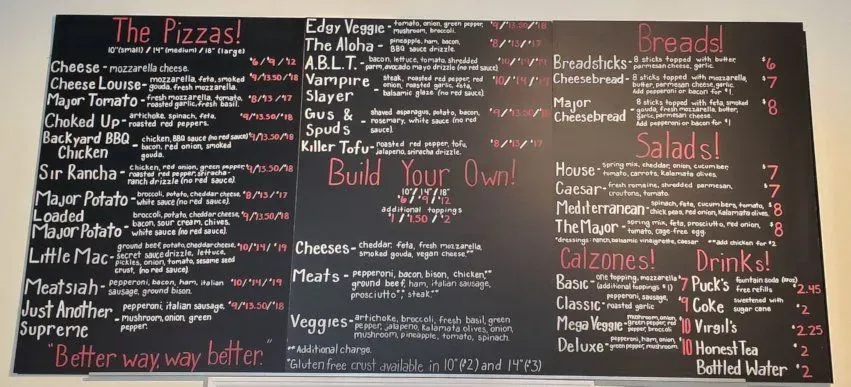 The Pizzas!
10"(small) / 14"(medium) / 18"(large)
Cheese - mozzarella cheese. $6/9/12
Cheese Louise - mozzarella, feta, smoked gouda, fresh mozzarella. $9/13.50/18
Major Tomato - fresh mozzarella, tomato, roasted garlic, fresh basil. $8/13/17
Choked Up - artichoke, spinach, feta, roasted red peppers. $9/13.50/18
Backyard BBQ Chicken - chicken, BBQ sauce (no red sauce) bacon, red onion, smoked gouda. $9/13.50/18
Sir Rancha - chicken, red onion, green pepper, roasted red pepper, sriracha-ranch drizzle (no red sauce). $9/13.50/18
Major Potato - broccoli, potato, cheddar cheese, white sauce (no red sauce). $8/13/17
Loaded Major Potato - broccoli, potato, cheddar cheese, bacon, sour cream, chives, white sauce (no red sauce). $9/13.50/18
Little Mac - ground beef, potato, cheddar cheese, secret sauce drizzle, lettuce, pickles, onion, tomato, sesame seed crust, (no red sauce). $10/14/19
Meatsiah - pepperoni, bacon, ham, italian sausage, ground bison. $10/14/19
Just Another Supreme - pepperoni, italian sausage, mushroom, onion, green pepper. $9/13.50/18
"Better way, way better."
Edgy Veggie - tomato, onion, green pepper, mushroom, broccoli, feta. $9/13.50/18
The Aloha - pineapple, ham, bacon, BBQ sauce drizzle. $8/13/17
A.B.L.T. - bacon, lettuce, tomato, shredded parm, avocado mayo drizzle (no red sauce)
Vampire Slayer - steak, roasted red pepper, red onion, roasted garlic, feta, balsamic glaze (no red sauce).
Gus & Spuds - shaved asparagus, potato, bacon, rosemary, white sauce (no red sauce). $9/13.50/18
Killer Tofu - roasted red pepper, tofu, jalapeno, sriracha drizzle. $8/13/17
Build Your Own!
10"/14"/18"
$6/$9/$12
additional toppings
$1/1.50/$2
Cheeses - cheddar, feta, fresh mozzarella, smoked gouda, vegan cheese.**
Meats - pepperoni, bacon, bison, chicken,** ground beef, ham, italian sausage, prosciutto**, steak.**
Veggies - artichoke, broccoli, fresh basil, green pepper, jalapeno, kalamata olives, onion, mushroom, pineapple, tomato, spinach.
**Additional charge.
*Gluten free crust available in 10"($2) and 14"($3)
Breads!
Breadsticks - 8 sticks topped with butter, parmesan cheese, garlic. $6
Cheesebread - 8 sticks topped with mozzarella, butter, parmesan cheese, garlic. Add pepperoni or bacon for $1. $7
Major Cheesebread - 8 sticks topped with feta, smoked gouda, fresh mozzarella, butter, garlic, parmesan cheese. Add pepperoni or bacon for $1. $8
Salads!
House - spring mix, cheddar, onion, cucumber, tomato, carrots, kalamata olives. $7
Caesar - fresh romaine, shredded parmesan, croutons, tomato. $7
Mediterranean - spinach, feta, cucumbers, tomato, chick peas, red onion, kalamata olives. $8
The Major - spring mix, feta, prosciutto, red onion, tomato, cage-free egg. $8
*dressings: ranch, balsamic vinaigrette, caesar **add chicken for $2
Calzones!
Basic - one topping, mozzarella (additional toppings $1) $7
Classic - pepperoni, sausage, roasted garlic $9
Mega Veggie - mushroom, onion, green pepper, red pepper, broccoli $10
Deluxe - pepperoni, ham, onion, green pepper, mushroom $10
Drinks!
Puck's fountain soda free refills $2.45
Coke sweetened with sugar cane $2
Virgil's $2.25
Honest Tea $2
Bottled Water $2